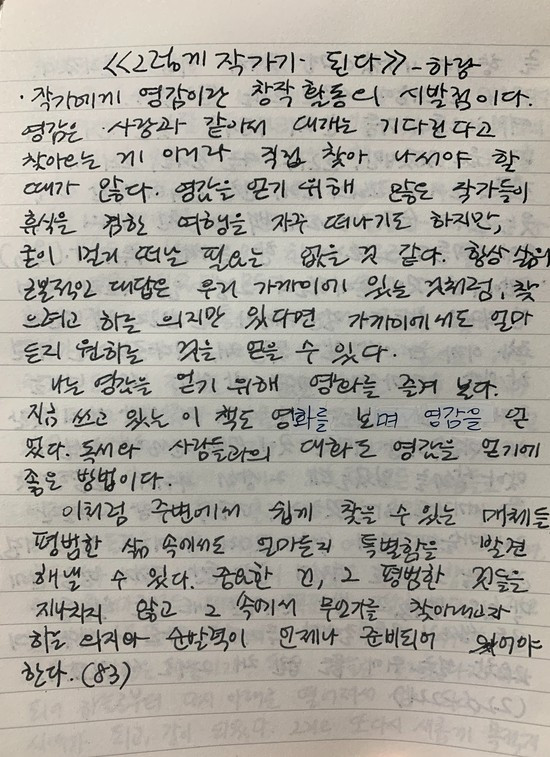 <<그렇게 작가가 된다>> - 하랑
· 작가에게 영감이란 창작 활동의 시발점이다.
영감은 사랑과 같아서 대개는 기다린다고
찾아오는 게 아니라 직접 찾아 나서야 할
때가 많다. 영감을 얻기 위해 많은 작가들이
휴식을 겸한 여행을 자주 떠나기도 하지만,
굳이 멀리 떠날 필요는 없을 것 같다. 항상 삶의
근본적인 대답은 우리 가까이에 있는 것처럼, 찾
으려고 하는 의지만 있다면 가까이에서도 얼마
든지 원하는 것을 얻을 수 있다.
나는 영감을 얻기 위해 영화를 즐겨 본다.
지금 쓰고 있는 이 책도 영화를 보며 영감을 얻
었다. 독서와 사람들과의 대화도 영감을 얻기에
좋은 방법이다.
이처럼 주변에서 쉽게 찾을 수 있는 매체들
평범한 삶 속에서도 얼마든지 특별함을 발견
해낼 수 있다. 중요한 건, 그 평범한 것들을
지나치지 않고 그 속에서 무언가를 찾아내고자
하는 의지와 순발력이 언제나 준비되어 있어야
한다. (83)